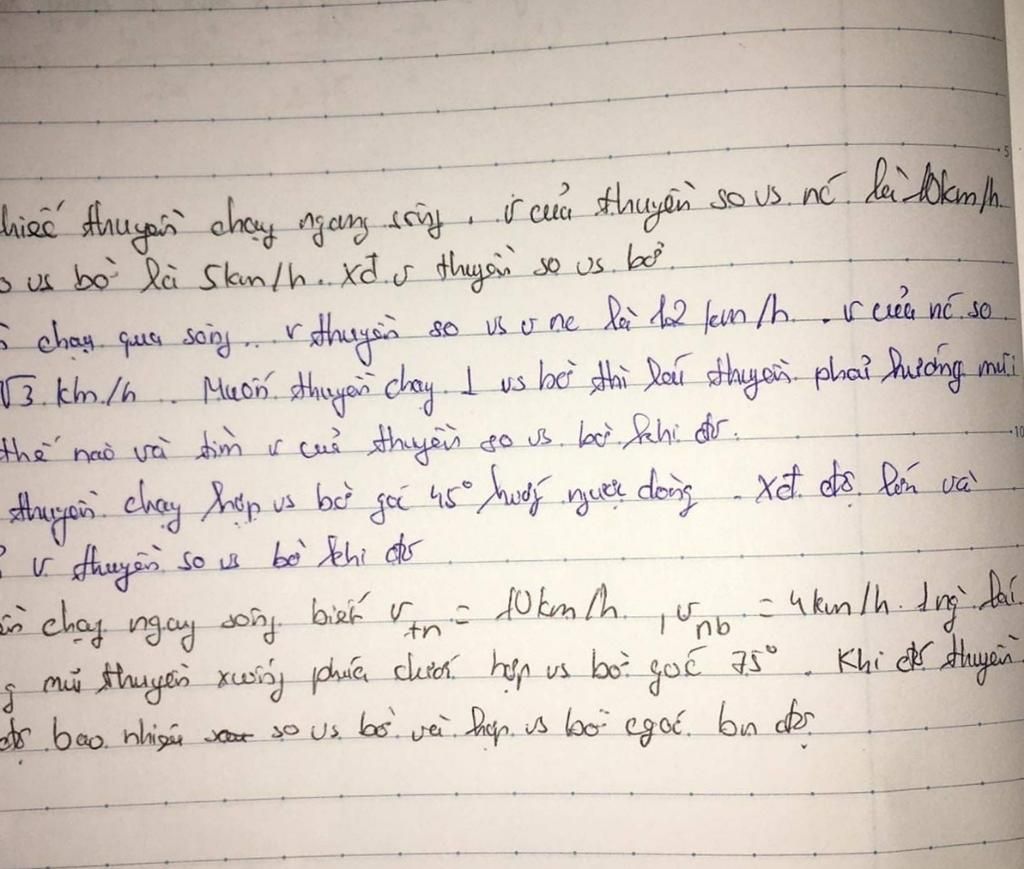 hiếc thuyền chạy ngang sông. v của thuyền so vs nc là 10km/h
o vs bờ là 5km/h. xđ v thuyền so vs bờ.
chạy qua sông.. v thuyền so vs v nc là 12 km/h. v của nc so
√3 km/h.. Muốn thuyền chạy ⊥ vs bờ thì lái thuyền phải hướng mũi
thế nào và tìm v của thuyền so vs bờ khi đó.
thuyền chạy hợp vs bờ góc 45° hướng ngược dòng. Xđ độ lớn và
v thuyền so vs bờ khi đó
chạy ngay sông biết v_tn = 10km/h, v_nb = 4km/h. 1 ng lái
g mũi thuyền xuống phía dưới hợp vs bờ góc 75°. Khi đó thuyền
độ bao nhiêu so vs bờ và hợp vs bờ góc bn độ.
5
10